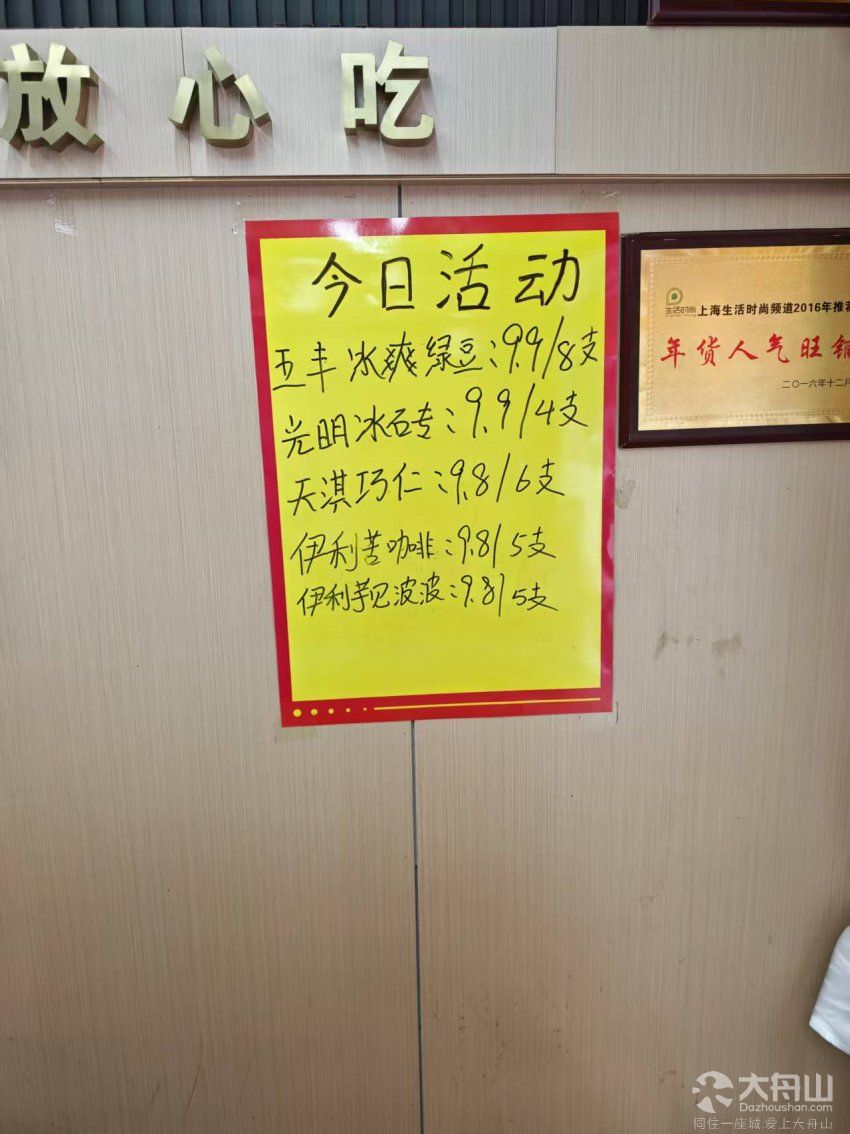 放心吃
今日活动
五丰冰爽绿豆:9.9/8支
光明冰砖:9.9/4支
天淇巧仁:9.8/6支
伊利苦咖啡:9.8/5支
伊利芋见波波:9.8/5支
生活时尚
上海生活时尚频道2016年推荐
年货人气旺铺
二〇一六年十二月
大舟山
Dazhoushan.com
同住一座城,爱上大舟山